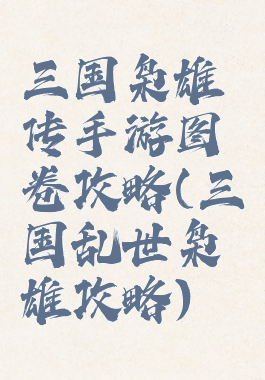 三国枭雄
传手游图
卷攻略(三
国乱世枭
雄攻略)